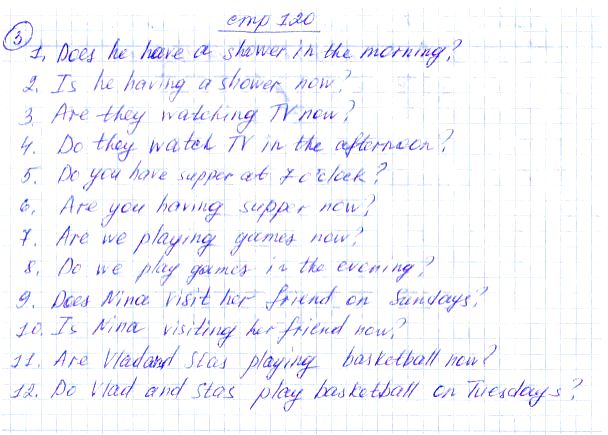 стр 120
3
1. Does he have a shower in the morning?
2. Is he having a shower now?
3. Are they watching TV now?
4. Do they watch TV in the afternoon?
5. Do you have supper at 7 o'clock?
6. Are you having supper now?
7. Are we playing games now?
8. Do we play games in the evening?
9. Does Nina visit her friend on Sundays?
10. Is Nina visiting her friend now?
11. Are Vlad and Stas playing basketball now?
12. Do Vlad and Stas play basketball on Tuesdays?